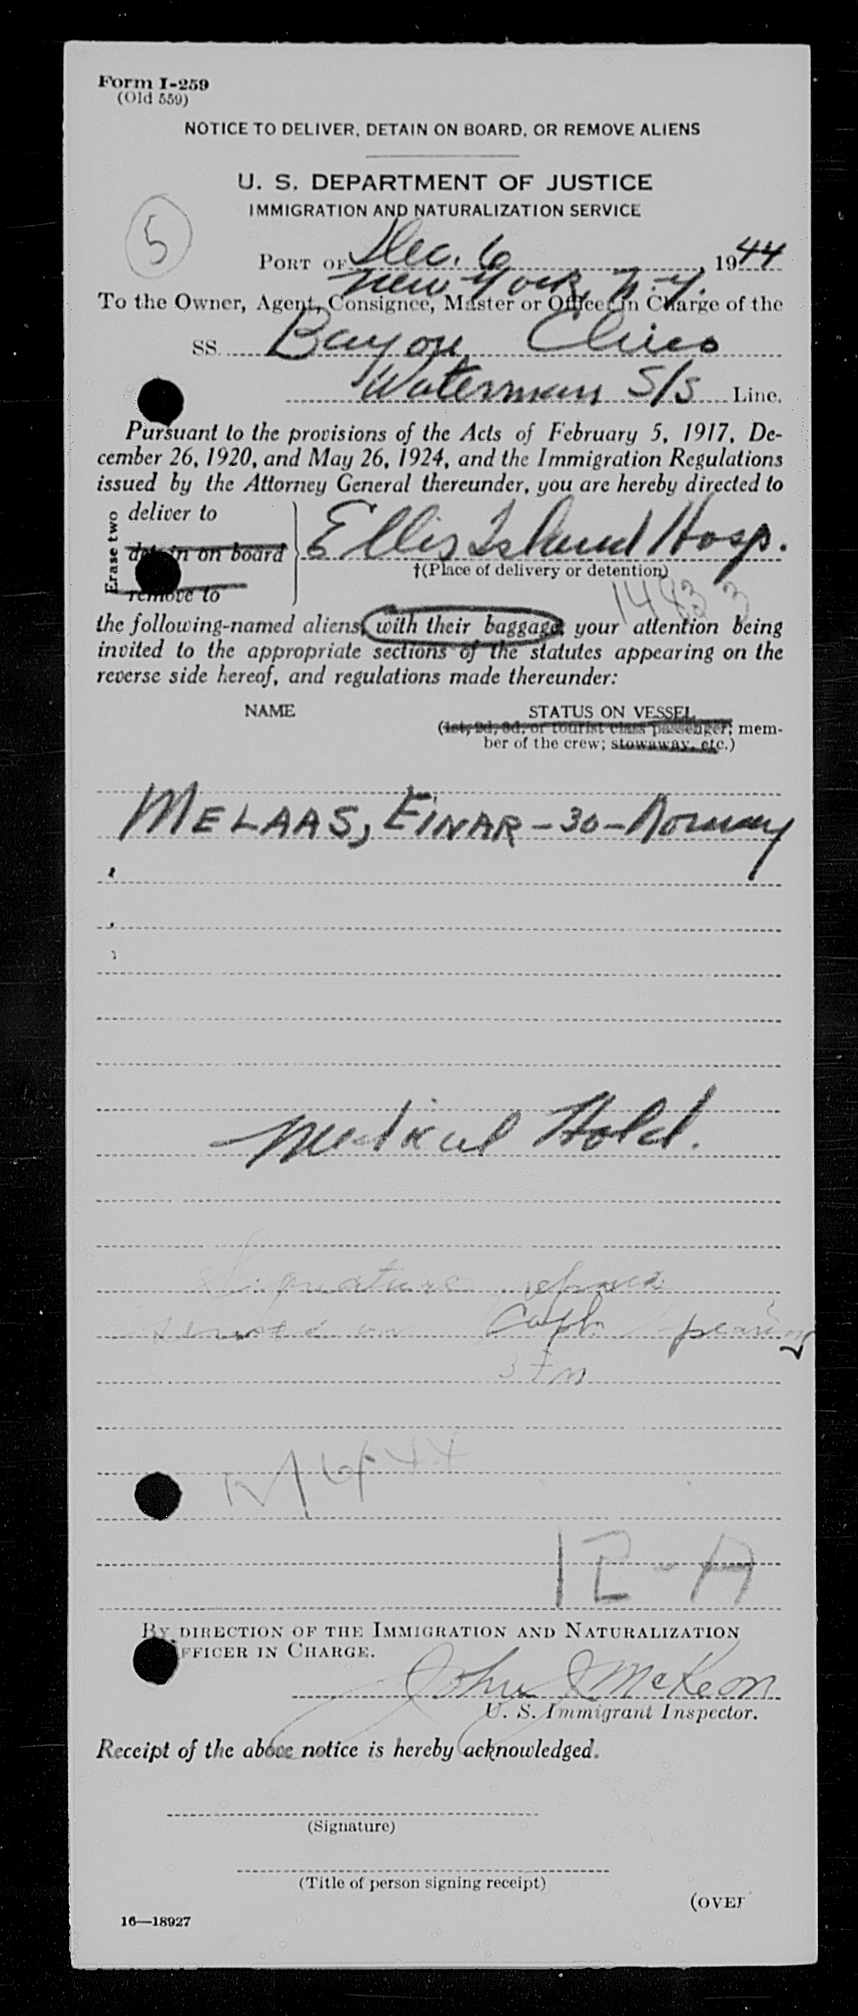 Form I-259
(Old 559)
NOTICE TO DELIVER, DETAIN ON BOARD, OR REMOVE ALIENS
U. S. DEPARTMENT OF JUSTICE
IMMIGRATION AND NATURALIZATION SERVICE
5
PORT OF Dec. 6, 1944
New York, N.Y.
To the Owner, Agent, Consignee, Master or Officer in Charge of the
SS. Bayou Chico
Waterman S/S Line.
Pursuant to the provisions of the Acts of February 5, 1917, De-
cember 26, 1920, and May 26, 1924, and the Immigration Regulations
issued by the Attorney General thereunder, you are hereby directed to
Erase two
deliver to
detain on board
remove to
Ellis Island Hosp.
†(Place of delivery or detention)
the following-named aliens, with their baggage, your attention being
invited to the appropriate sections of the statutes appearing on the
reverse side hereof, and regulations made thereunder:
NAME STATUS ON VESSEL
(1st, 2d, 3d, or tourist class passenger; mem-
ber of the crew; stowaway, etc.)
MELAAS, EINAR - 30 - Norway
Medical Hold.
Signature refused
served on Capt.
12-A
BY DIRECTION OF THE IMMIGRATION AND NATURALIZATION
OFFICER IN CHARGE.
John J McKeon
U. S. Immigrant Inspector.
Receipt of the above notice is hereby acknowledged.
(Signature)
(Title of person signing receipt)
(OVER
16—18927